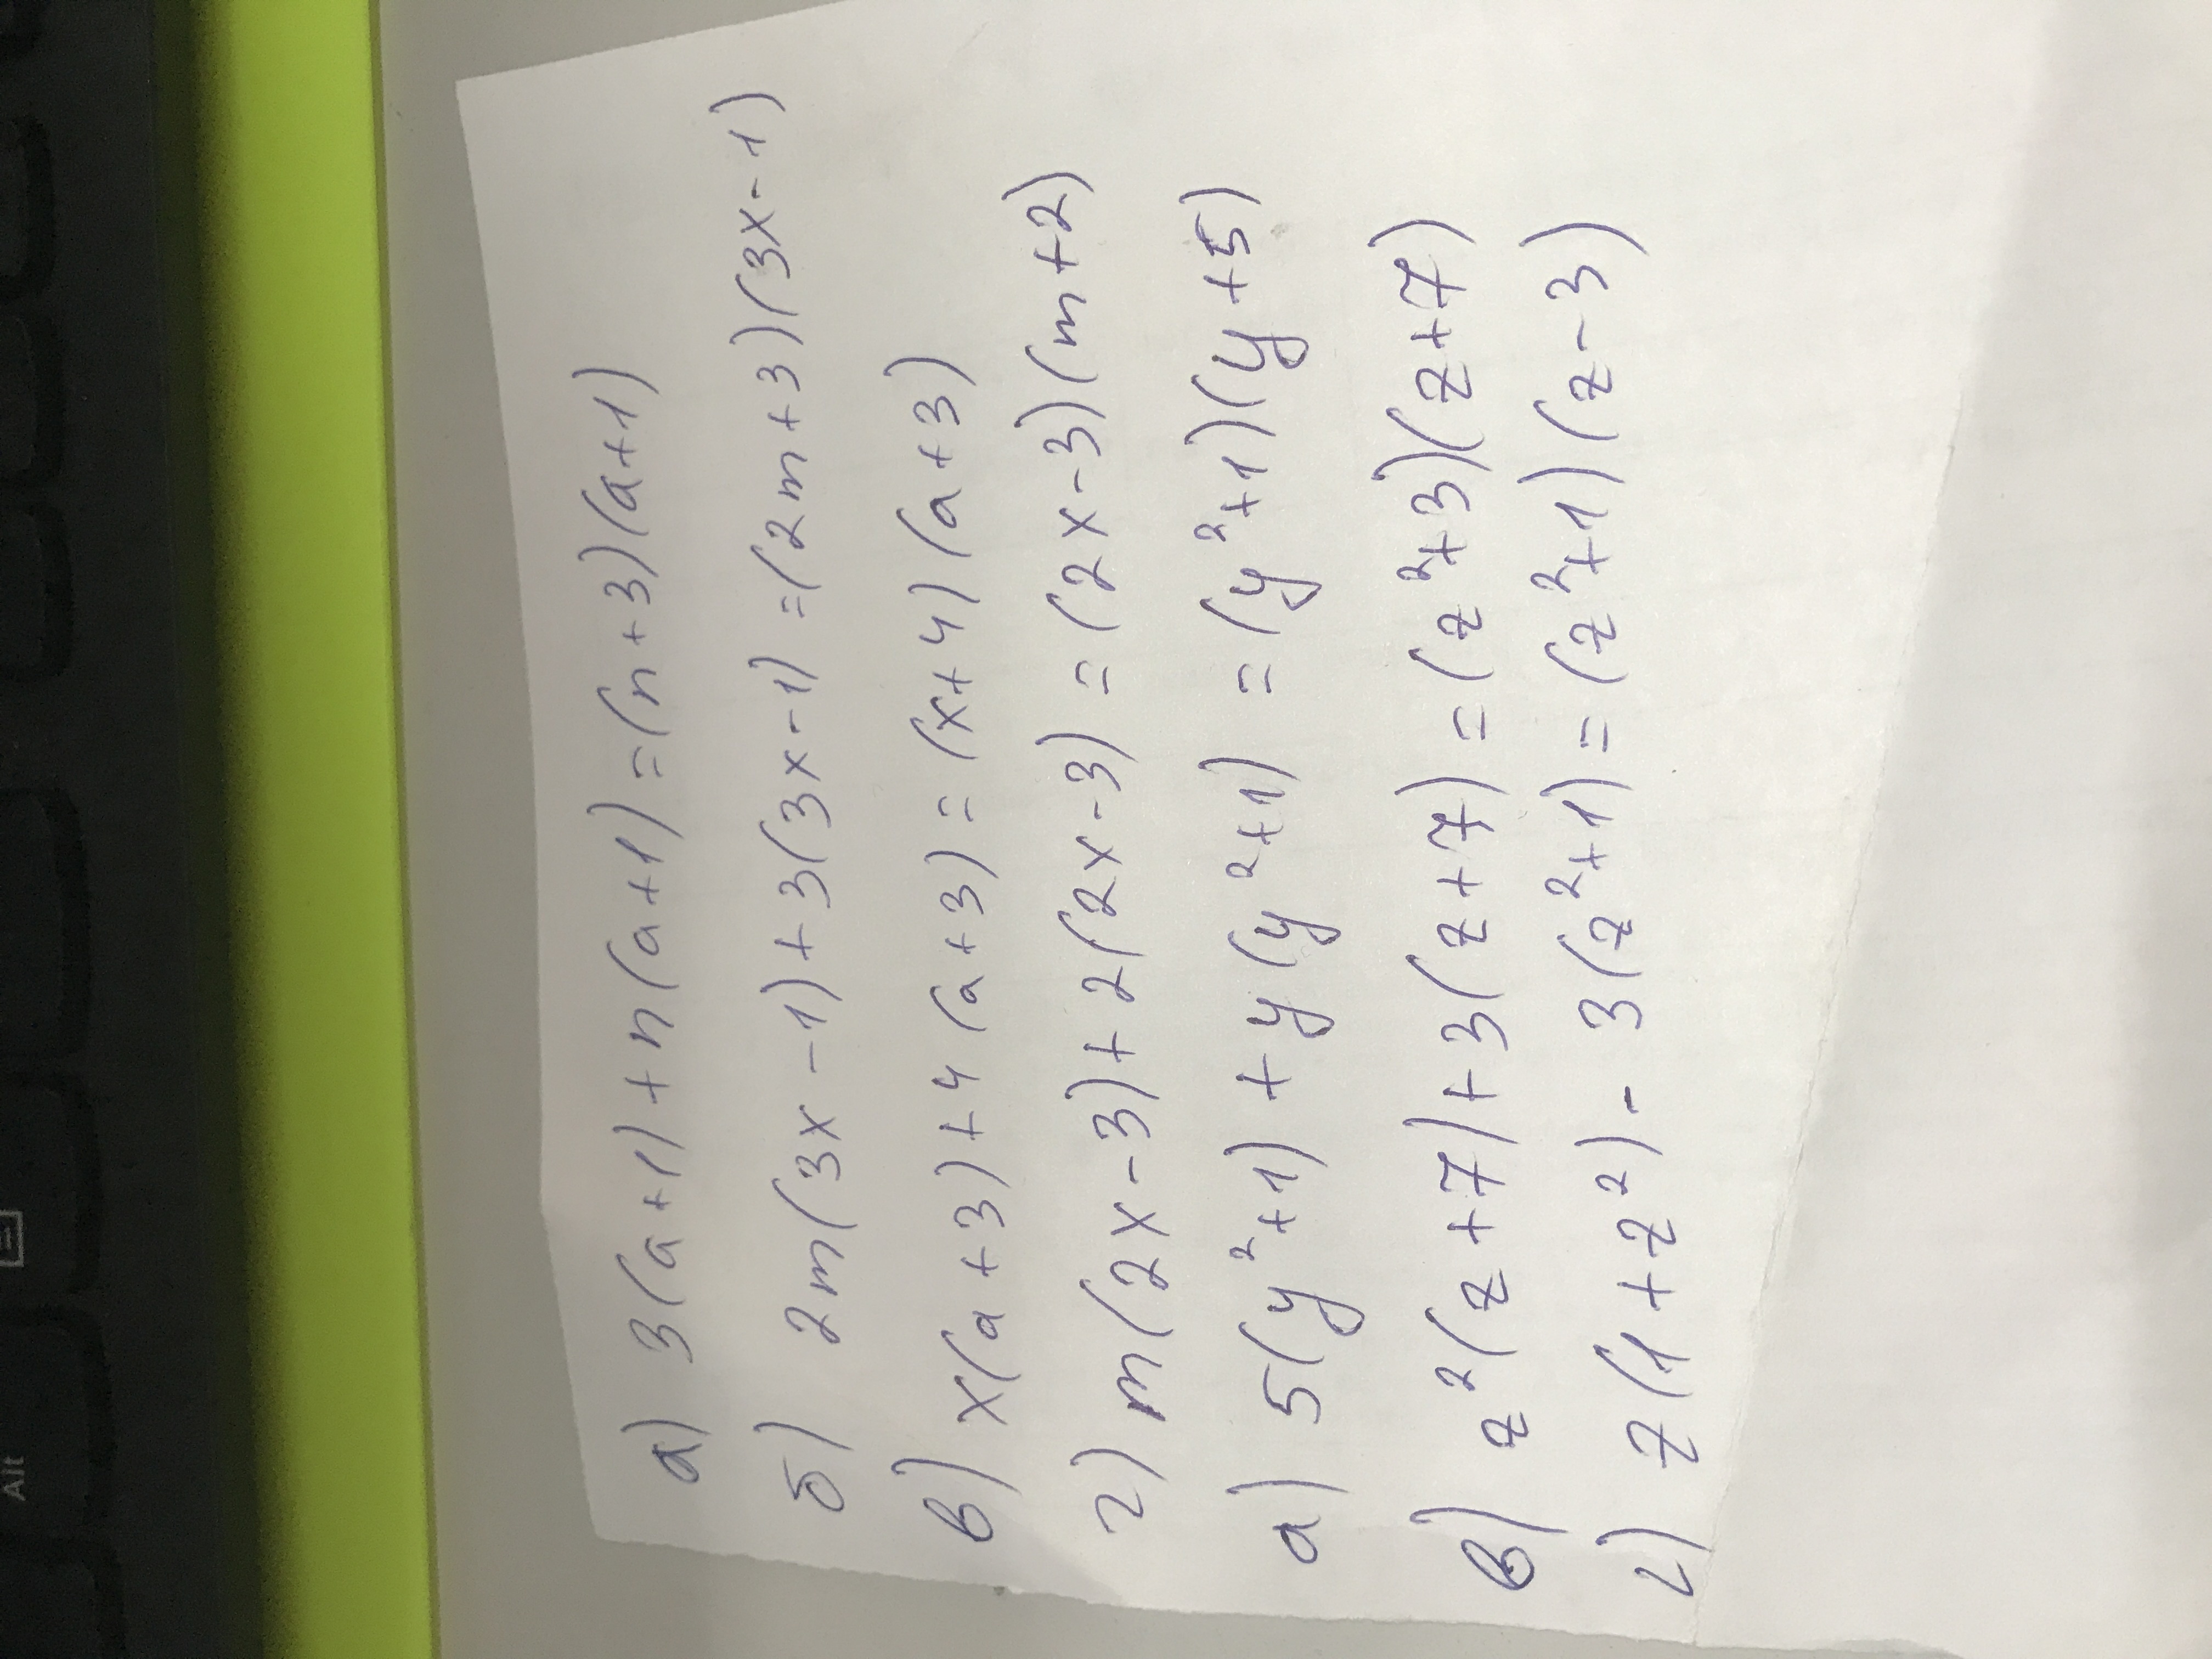 а) 3(a+1)+n(a+1)=(n+3)(a+1)
б) 2m(3x-1)+3(3x-1)=(2m+3)(3x-1)
в) x(a+3)+4(a+3)=(x+4)(a+3)
г) m(2x-3)+2(2x-3)=(2x-3)(m+2)
а) 5(y²+1)+y(y²+1)=(y²+1)(y+5)
в) z²(z+7)+3(z+7)=(z²+3)(z+7)
г) z(1+z²)-3(z²+1)=(z²+1)(z-3)
Alt